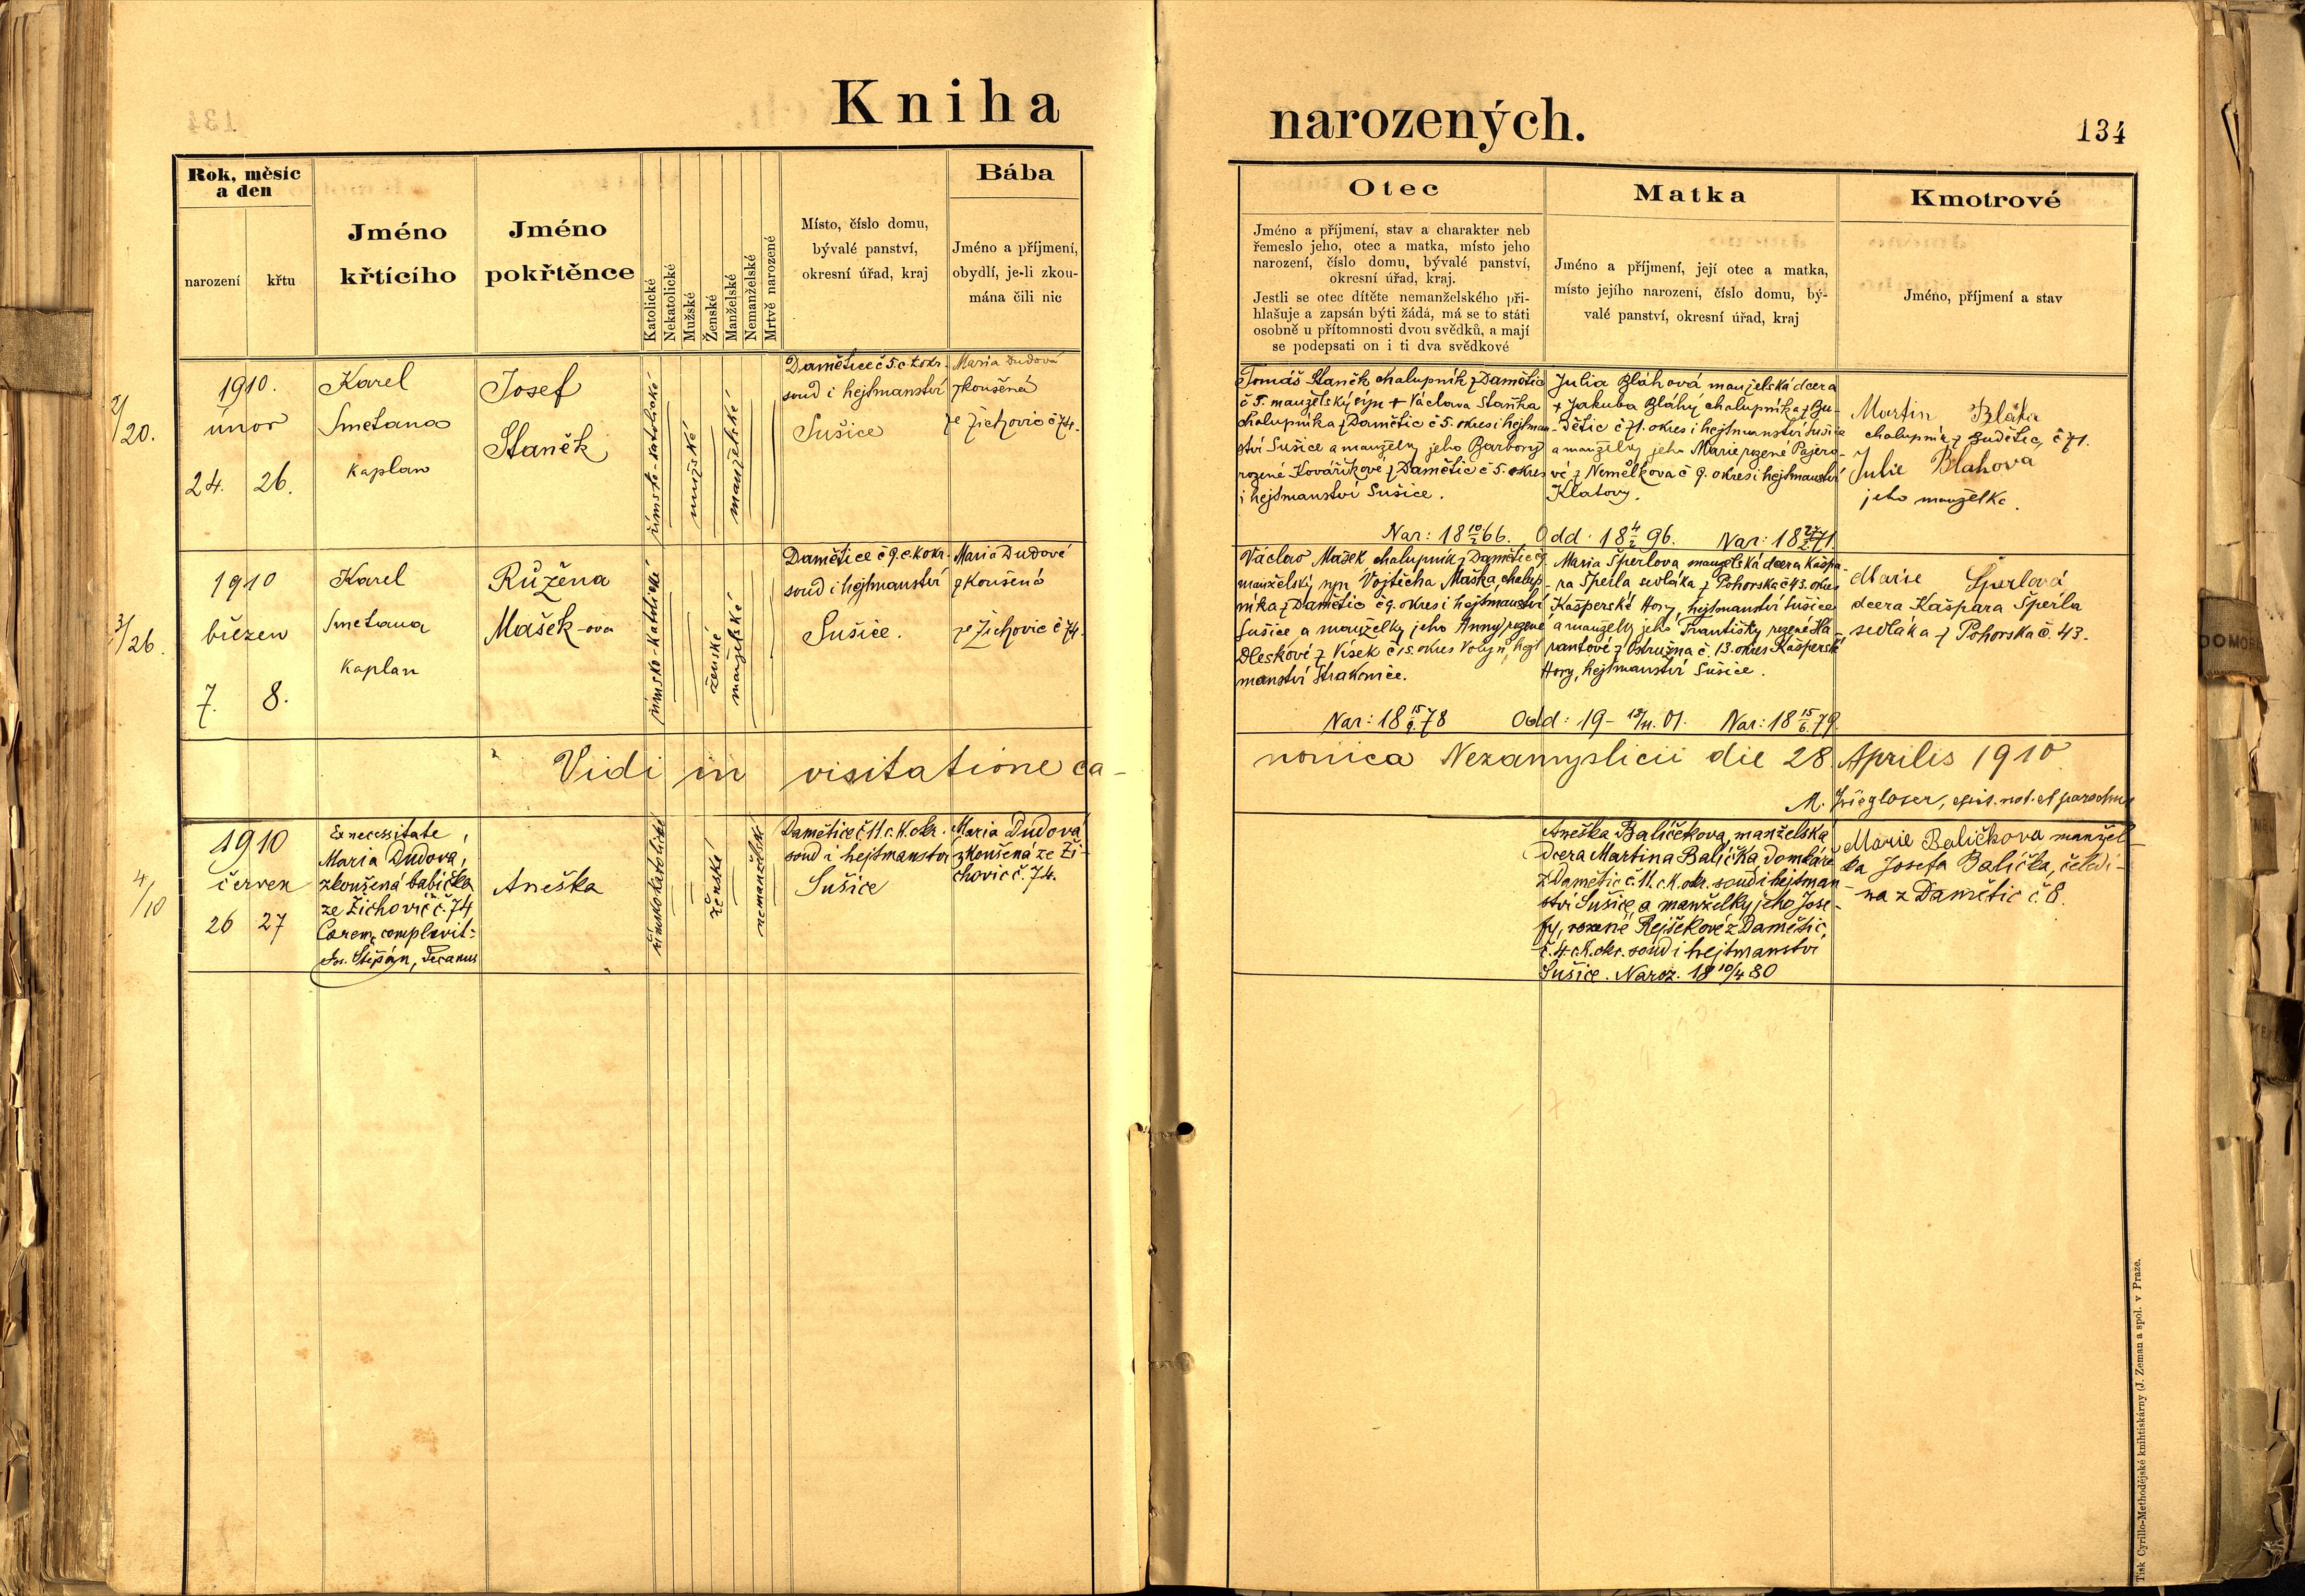 Kniha
narozených.
134
Rok, měsíc
a den
narození
křtu
Jméno
křtícího
Jméno
pokřtěnce
Katolické
Nekatolické
Mužské
Ženské
Manželské
Nemanželské
Mrtvě narozené
Místo, číslo domu,
bývalé panství,
okresní úřad, kraj
Bába
Jméno a příjmení,
obydlí, je-li zkou-
mána čili nic
Otec
Jméno a příjmení, stav a charakter neb
řemeslo jeho, otec a matka, místo jeho
narození, číslo domu, bývalé panství,
okresní úřad, kraj.
Jestli se otec dítěte nemanželského při-
hlašuje a zapsán býti žádá, má se to státi
osobně u přítomnosti dvou svědků, a mají
se podepsati on i ti dva svědkové
Matka
Jméno a příjmení, její otec a matka,
místo jejího narození, číslo domu, bý-
valé panství, okresní úřad, kraj
Kmotrové
Jméno, příjmení a stav
2/20.
1910.
únor
24. 26.
Karel
Smetana
kaplan
Josef
Staněk
římsko-katolické
mužské
manželské
Damětice č 5. c. k. okr.
soud i hejtmanství
Sušice
Maria Dudová
zkoušená
ze Žichovic č 74.
Tomáš Staněk chalupník z Damětic
č 5. manželský syn + Václava Staňka
chalupníka z Damětic č 5. okres i hejtman-
ství Sušice a manželky jeho Barbory
rozené Kováříkové z Damětic č 5. okres
i hejtmanství Sušice.
Nar: 18 10/2 66.
Odd: 18 4/2 96.
Julia Bláhová manželská dcera
+ Jakuba Bláhy chalupníka z Bu-
dětic č 71. okres i hejtmanství Sušice
a manželky jeho Marie rozené Pajero-
vé z Nemělkova č 9. okres i hejtmanství
Klatovy.
Nar: 18 27/2 71.
Martin Bláha
chalupník z Budětic, č 71.
Julie Blahova
jeho manželka.
3/26.
1910
březen
7. 8.
Karel
Smetana
kaplan
Růžena
Mašek-ova
římsko-katolické
ženské
manželské
Damětice č 9. c. k. okr.
soud i hejtmanství
Sušice.
Maria Dudová
zkoušená
ze Žichovic č 74.
Václav Mašek chalupník z Damětic č 9.
manželský syn Vojtěcha Maška, chalup-
níka z Damětic č 9. okres i hejtmanství
Sušice a manželky jeho Anny rozené
Dleskové z Vísek č 15. okres Volyň, hejt
manství Strakonice.
Nar: 18 15/9. 78
Odd: 19 - 18/11. 01.
Maria Šperlova manželská dcera Kašpa-
ra Šperla sedláka z Pohorska č 43. okres
Kašperské Hory, hejtmanství Sušice
a manželky jeho Františky rozené Ha-
rantové z Ostružna č. 13. okres Kašperské
Hory, hejtmanství Sušice.
Nar: 18 15/6. 79.
Marie Šperlová
dcera Kašpara Šperla
sedláka z Pohorska č. 43.
Vidi in visitatione ca-
nonica Nezamyslicii die 28. Aprilis 1910
4/10
1910
červen
26 27
Ex necessitate
Maria Dudová,
zkoušená babička
ze Žichovic č. 74
Cærem. complevit:
Jos. Štěpán, Decanus
Aneška
římskokatolické
ženské
nemanželské
Damětice č 11. c. k. okr.
soud i hejtmanství
Sušice
Maria Dudová
zkoušená ze Ži-
chovic č. 74.
Aneška Baličkova, manželská
dcera Martina Balička domkáře
z Damětic č. 11. c. k. okr. soud i hejtman
ství Sušice, a manželky jeho Jose-
fy, rozené Rejšekové z Damětic,
č. 4. c. k. okr. soud i hejtmanství
Sušice. Naroz. 18 10/4 80
Marie Baličkova manžel-
ka Josefa Balička, čeledí-
na z Damětic č. 8.
Tisk Cyrillo-Methodějské knihtiskárny (J. Zeman a spol. v Praze.